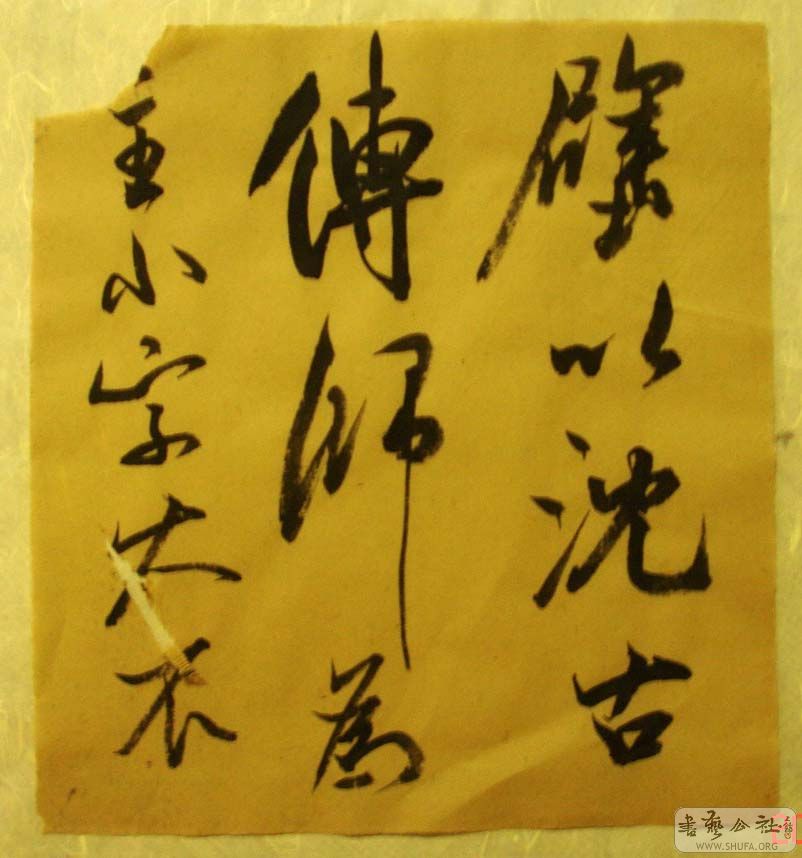 壁以沈古
傳師為
主小字大不
書藝公社
WWW.SHUFA.ORG